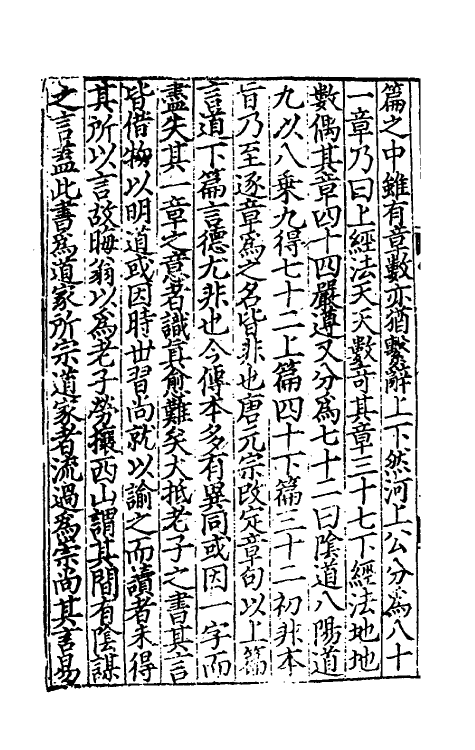 篇之中雖有章數亦猶繫辭上下然河上公分爲八十
一章乃曰上經法天天數奇其章三十七下經法地地
數偶其章四十四嚴遵又分爲七十二曰陰道八陽道
九以八乗九得七十二上篇四十下篇三十二初非本
旨乃至逐章爲之名皆非也唐元宗改定章句以上篇
言道下篇言德尤非也今傳本多有異同或因一字而
盡失其一章之意者識真愈難矣大抵老子之書其言
皆借物以明道或因時世習尚就以諭之而讀者未得
其所以言故晦翁以爲老子勞攘西山謂其間有陰謀
之言蓋此書爲道家所宗道家者流過爲宗尚其言易